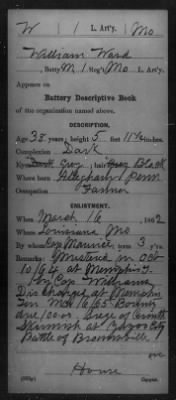 W | 1 | L. Art'y. | Mo
William Ward
, Batty M, 1 Reg't Mo L. Art'y.
Appears on
Battery Descriptive Book
of the organization named above.
DESCRIPTION.
Age 33 years; height 5 feet 11 inches.
Complexion Dark
Eyes Grey; hair Black
Where born Alleghany Penn
Occupation Farmer
ENLISTMENT.
When March 16, 1862
Where Louisiana Mo
By whom Cap Maurice; term 3 y'rs.
Remarks: Mustered in Oct
10/64 at Memphis T.
by Cap Williams
Discharged at Memphis
Ten Mch 16/65 Bounty
due 100.00 Siege of Corinth
Skirmish at
Battle of Brownsville
over
Howe
Copyist.